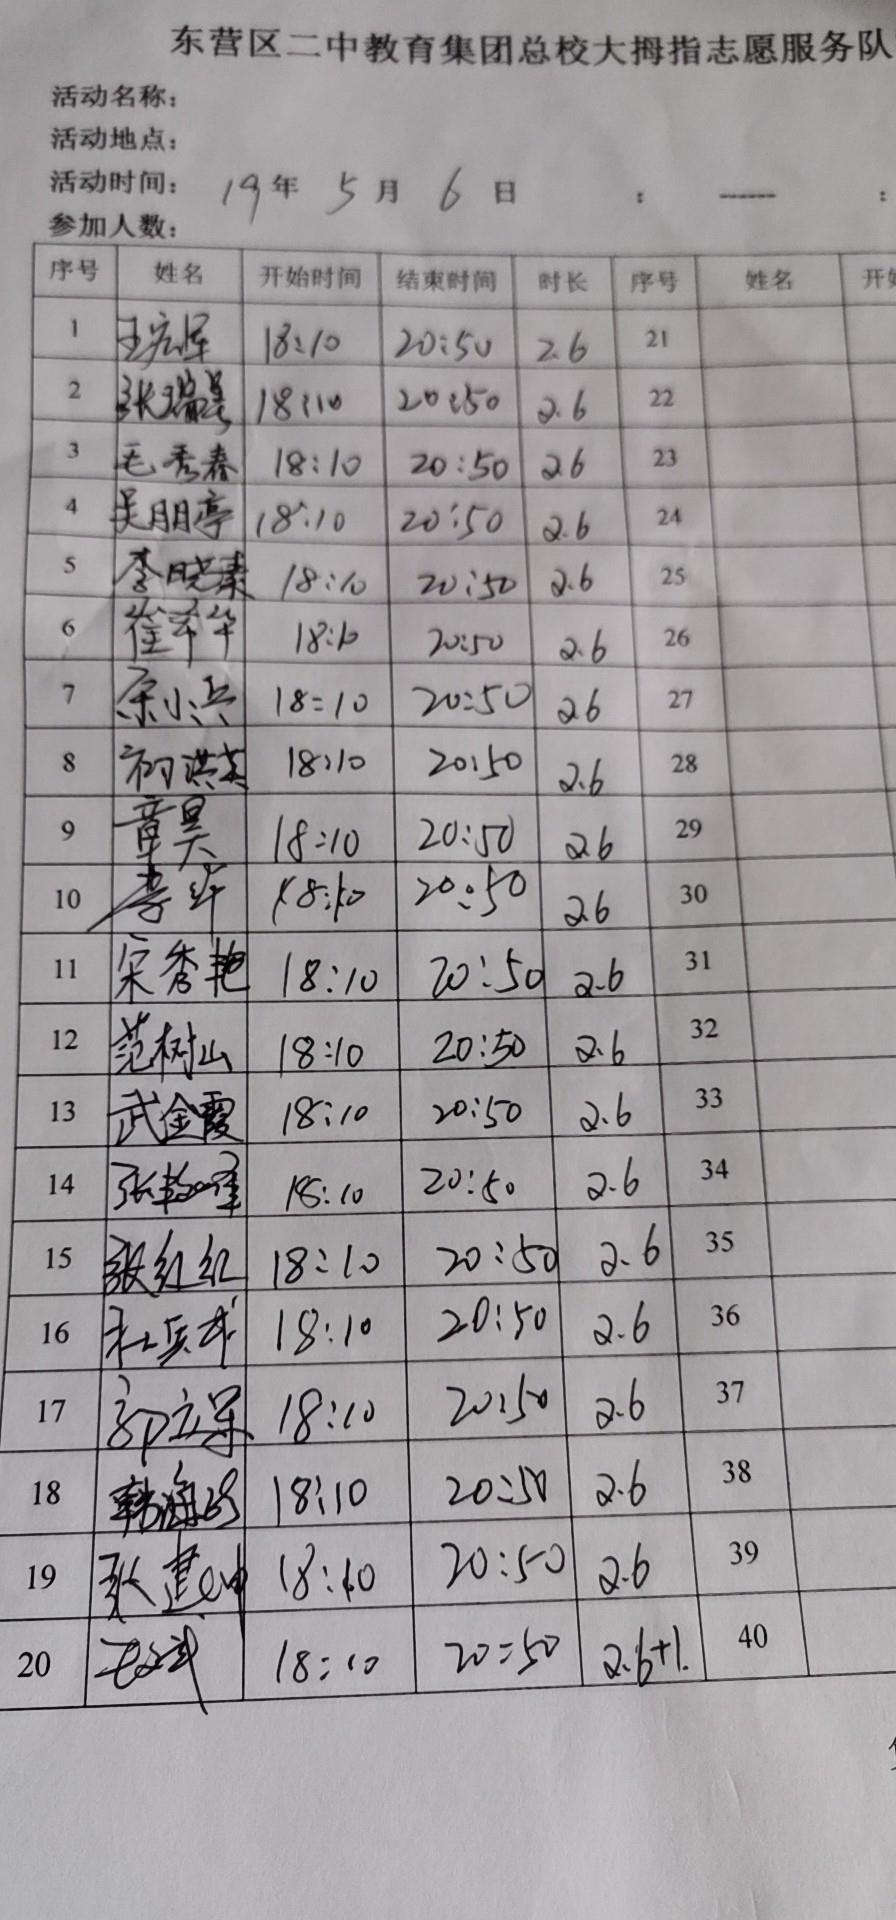 东营区二中教育集团总校大拇指志愿服务队
活动名称：
活动地点：
活动时间： 19年 5月 6日 ： ------ ：
参加人数：
序号 姓名 开始时间 结束时间 时长 序号 姓名 开始
1 王宏军 18:10 20:50 2.6 21
2 张瑞 18:10 20:50 2.6 22
3 毛秀春 18:10 20:50 2.6 23
4 吴朋亭 18:10 20:50 2.6 24
5 李晓 18:10 20:50 2.6 25
6 崔 华 18:10 20:50 2.6 26
7 小兵 18:10 20:50 2.6 27
8 洪 18:10 20:50 2.6 28
9 章昊 18:10 20:50 2.6 29
10 李华 18:10 20:50 2.6 30
11 宋秀艳 18:10 20:50 2.6 31
12 范树山 18:10 20:50 2.6 32
13 武金霞 18:10 20:50 2.6 33
14 张 18:10 20:50 2.6 34
15 张红红 18:10 20:50 2.6 35
16 杜兵 18:10 20:50 2.6 36
17 郭立军 18:10 20:50 2.6 37
18 韩海 18:10 20:50 2.6 38
19 张建 18:10 20:50 2.6 39
20 18:10 20:50 2.6+1. 40